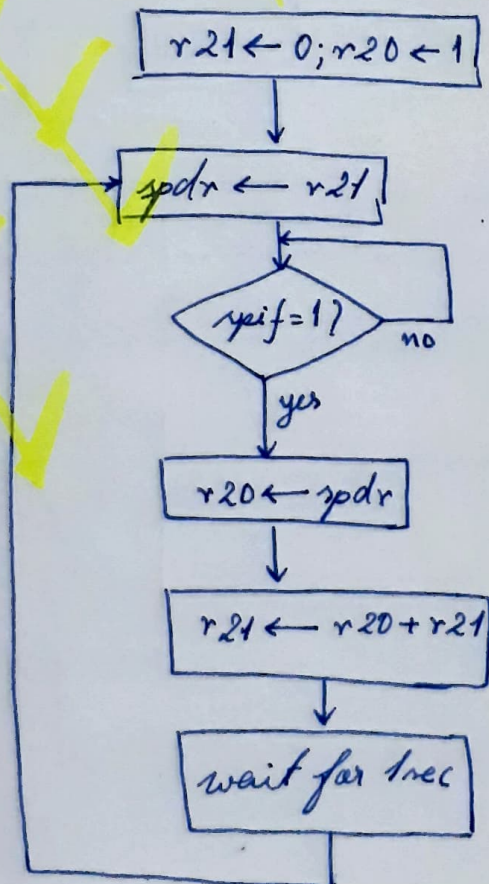 r21 ← 0; r20 ← 1
spdr ← r21
spif=1?
no
yes
r20 ← spdr
r21 ← r20 + r21
wait for 1sec